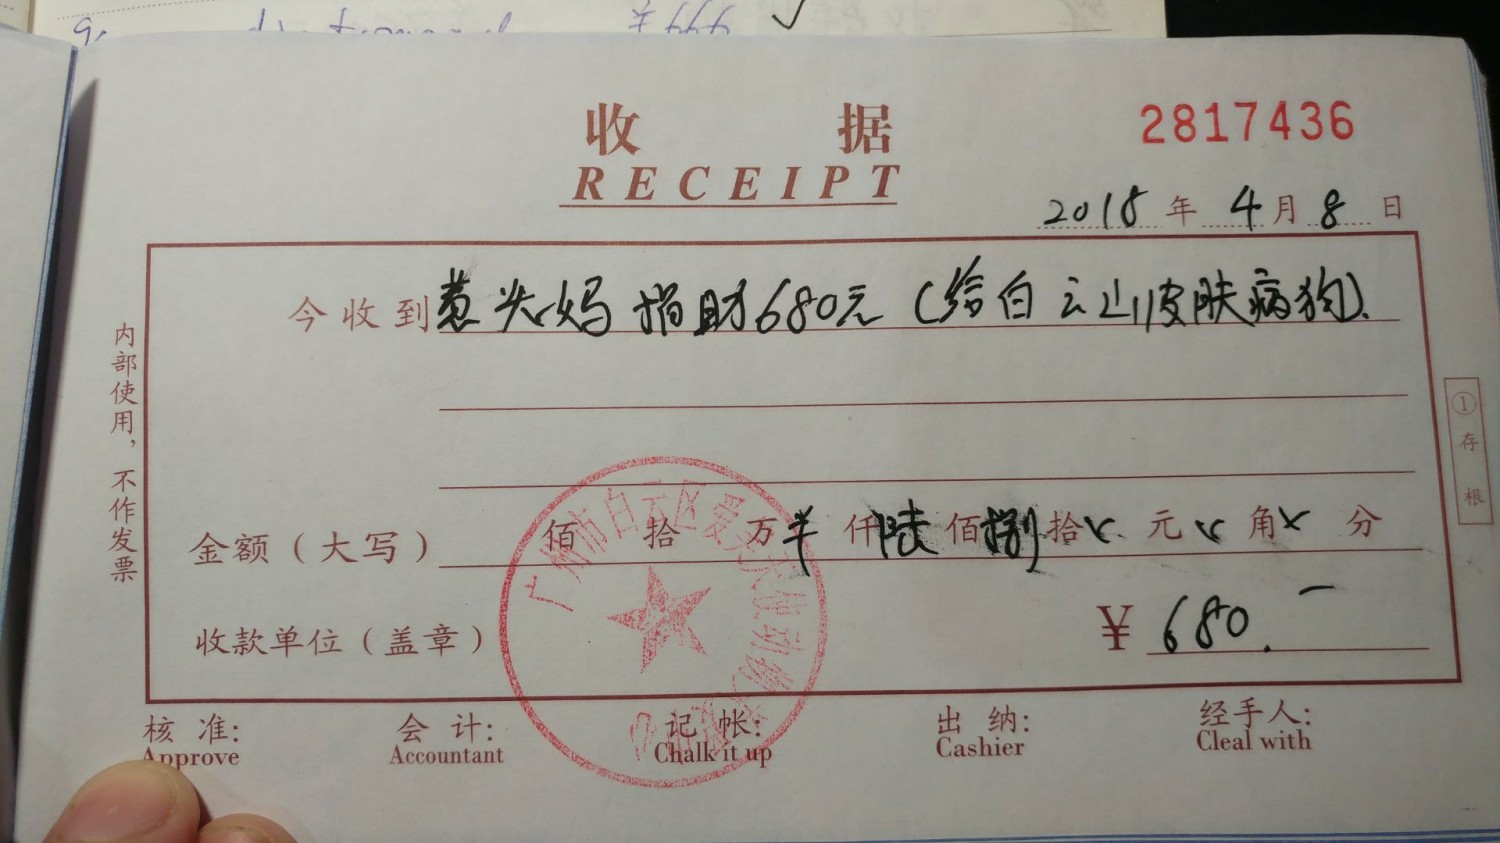 收据
RECEIPT
2817436
2018年4月8日
今收到葱头妈捐助680元(给白云山皮肤病狗).
金额(大写) 佰 拾 万 仟陆佰捌拾 元 角 分
收款单位(盖章) ¥ 680.
核准: 会计: 记帐: 出纳: 经手人:
Approve Accountant Chalk it up Cashier Cleal with
内部使用,不作发票
①存根
广州市白云区爱